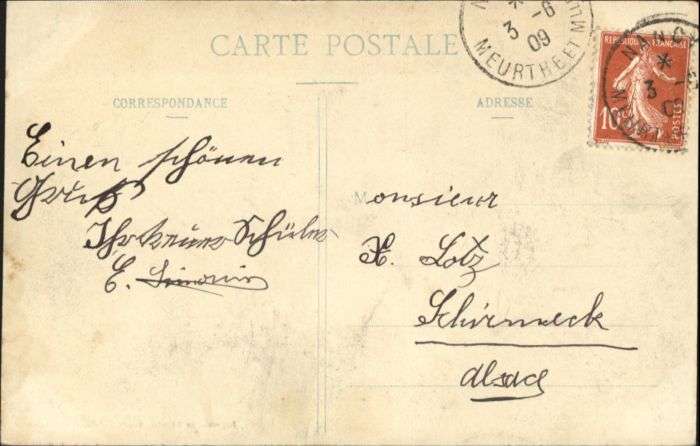 CARTE POSTALE
CORRESPONDANCE
ADRESSE
Einen schönen
Gruß
Ihr treuer Schüler
E. Simonin
Monsieur
X. Lotz
Schirmeck
Alsace
3 -6
09
MEURTHE ET M
REPUBLIQUE FRANÇAISE
10
POSTES
NANCY
3